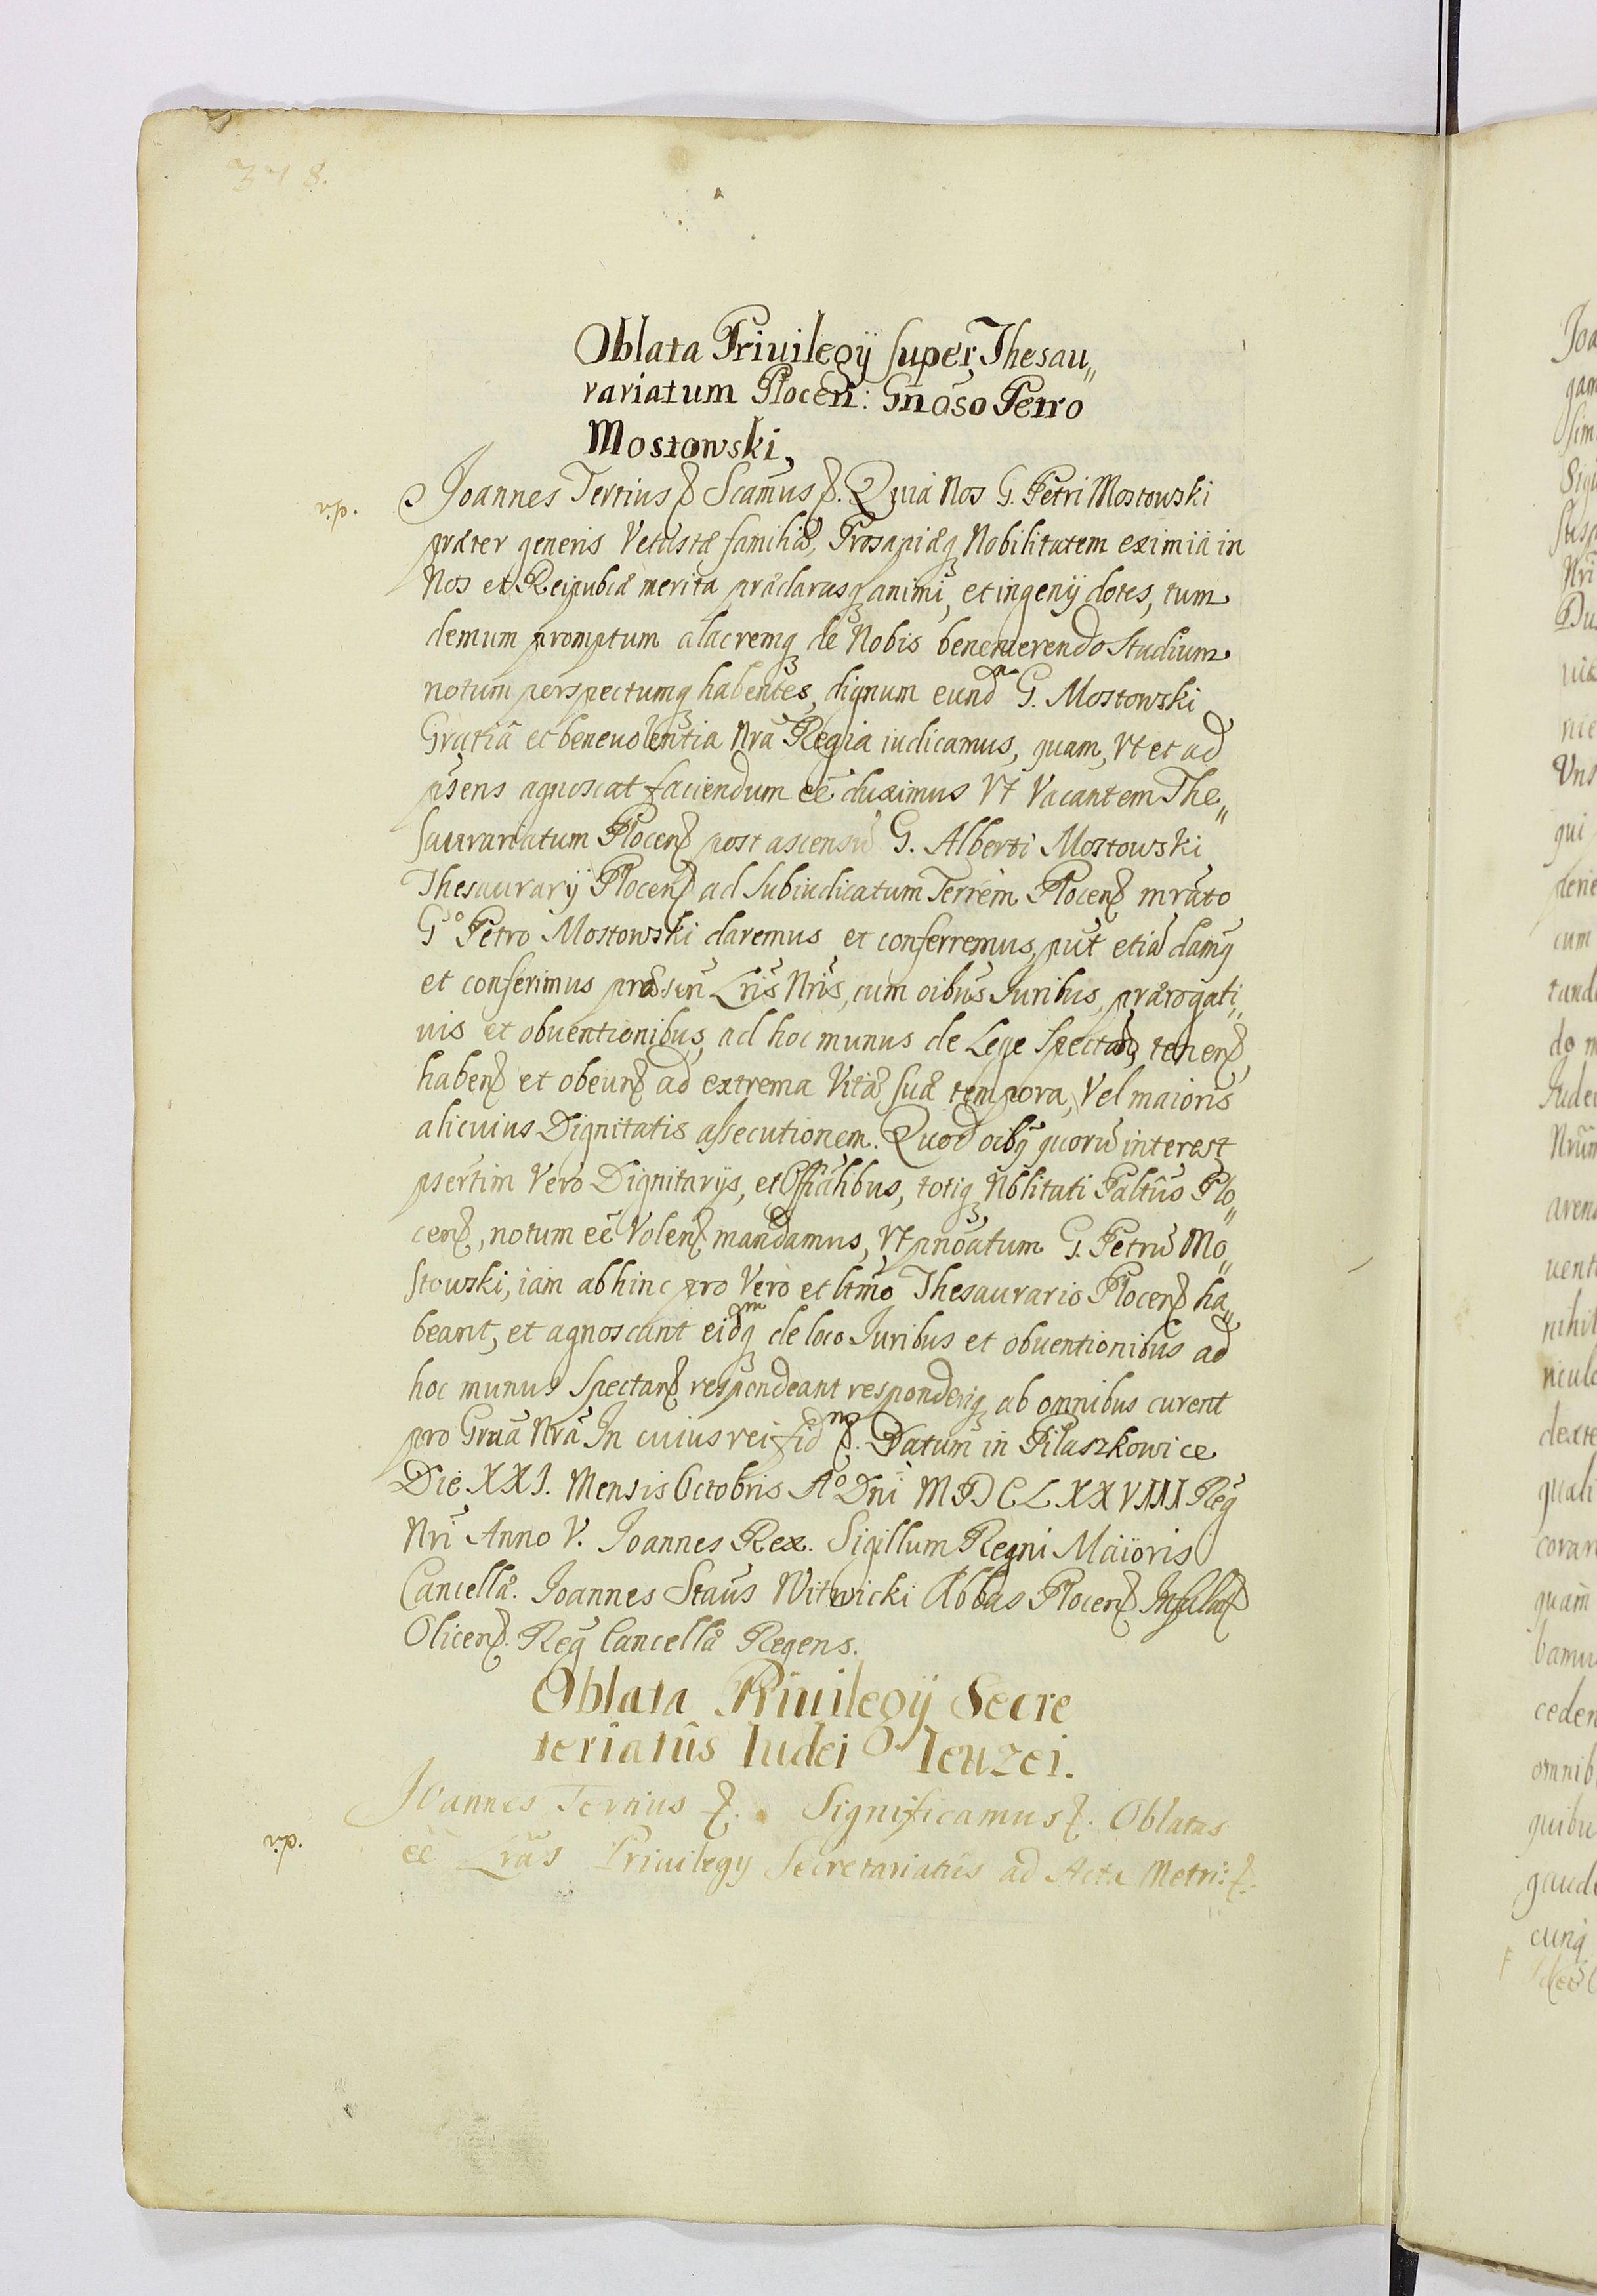 378.
Oblata Priuilegÿ super Thesau„
rariatum Plocen̄: Gn̄oso Petro
Mostowski.
v.p. Joannes Tertius ꝭ Scāmus ꝭ. Quia Nos G. Petri Mostowski
præter generis Vetustæ familiæ, Prosapiæq; Nobilitatem eximiā in
Nos et Reipubcā merita præclarasq; animi, et ingenÿ dotes, tum
demum promptum alacremq; de Nobis benemerendo studium
notum perspectumq; habentes, dignum eundm G. Mostowski
Gratiā et beneuolentia Nrā Regia iudicamus, quam, Vt et ad
pn̄sens agnoscat faciendum eē duximus Vt Vacantem The„
saurariatum Plocenꝭ post ascensū G. Alberti Mostowski
Thesaurarÿ Plocenꝭ ad Subiudicatum Terrēm Plocenꝭ mrāto
Go Petro Mostowski daremus et conferremus, put etiā damꝰ
et conferimus præsen̄ Lr̄is Nr̄is, cum oib̄us Juribus, prærogati„
uis et obuentionibus, ad hoc munus de Lege spectanꝭ, tenenꝭ,
habenꝭ et obeunꝭ ad extrema Vitæ suæ tempora, Vel maioris
alicuius Dignitatis assecutionem. Quod oibꝰ quorū interest
psertim Vero Dignitarÿs, et Offialibus, totiq; Nblitati Paltūs Plo„
cenꝭ, notum eē Volenꝭ mandamus, Vt pnōatum G. Petrū Mo„
stowski, iam abhinc pro Vero et ltmō Thesaurario Plocenꝭ ha„
beant, et agnoscant eidmq; de loco Juribus et obuentionibus ad
hoc munus spectanꝭ respondeant responderiq; ab omnibus curent
pro Gr̄ua Nrā In cuius rei fidmꝭ. Datum in Pilaszkowice
Die XXI. Mensis Octobris Ao Dni MDCLXXVIII Reḡ
Nr̄i Anno V. Joannes Rex. Sigillum Regni Maioris
Cancellæ. Joannes Staūs Witwicki Abbas Plocenꝭ
Olicenꝭ. Reḡ Cancellæ Regens.
Oblata Priuilegÿ Secre
teriatûs Iudei
v.p. Joannes Tertius ꝭ. Significamus ꝭ. Oblatas
eē Lrās Priuilegÿ Secretariatûs ad Acta Metri: ꝭ.